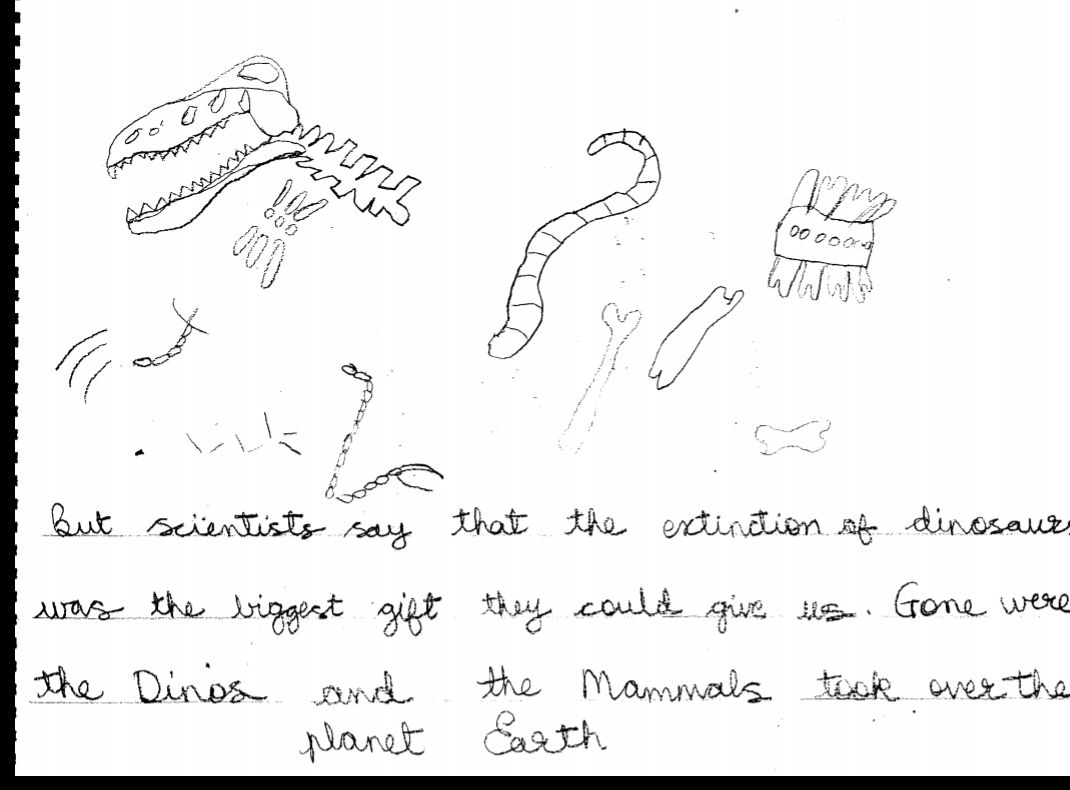 But scientists say that the extinction of dinosaurs
was the biggest gift they could give us. Gone were
the Dinos and the Mammals took over the
planet Earth